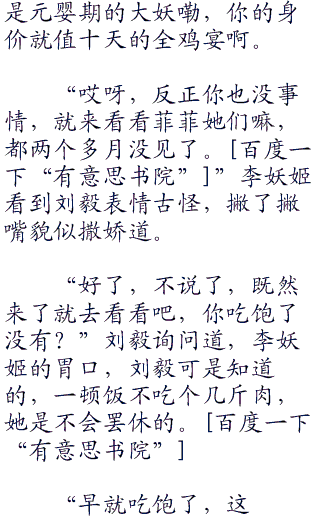 是元婴期的大妖嘞，你的身
价就值十天的全鸡宴啊。
“哎呀，反正你也没事
情，就来看看菲菲她们嘛，
都两个多月没见了。[百度一
下“有意思书院”]”李妖姬
看到刘毅表情古怪，撇了撇
嘴貌似撒娇道。
“好了，不说了，既然
来了就去看看吧，你吃饱了
没有？”刘毅询问道，李妖
姬的胃口，刘毅可是知道
的，一顿饭不吃个几斤肉，
她是不会罢休的。[百度一下
“有意思书院”]
“早就吃饱了，这